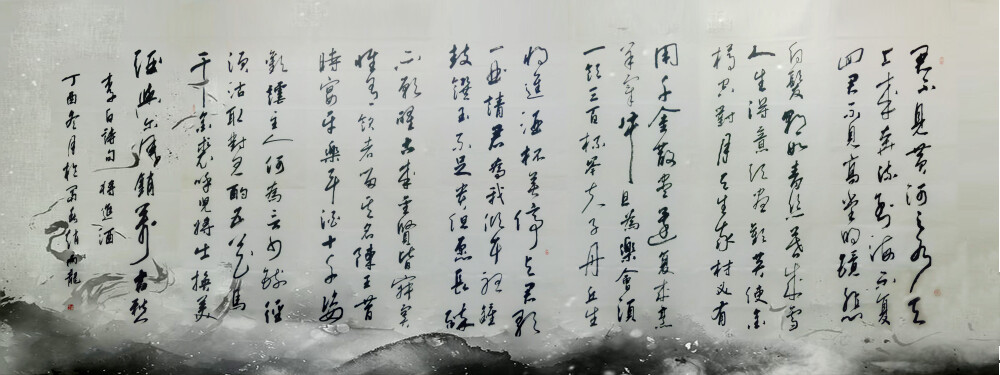 君不見黃河之水天
上来奔流到海不复
回君不見高堂明鏡悲
白髮朝如青丝暮成雪
人生得意須盡歡莫使金
樽空對月天生我材必有
用千金散盡還复来烹
羊宰牛且為樂會須
一飲三百杯岑夫子丹丘生
将進酒杯莫停与君歌
一曲請君為我傾耳聽鐘
鼓饌玉不足贵但愿長醉
不願醒古来圣賢皆寂寞
惟有飲者留其名陳王昔
時宴平樂斗酒十千恣
歡謔主人何為言少錢徑
須沽取對君酌五花馬
千金裘呼兒将出換美
酒與尔同銷萬古愁
李白詩句将進酒
丁酉冬月於